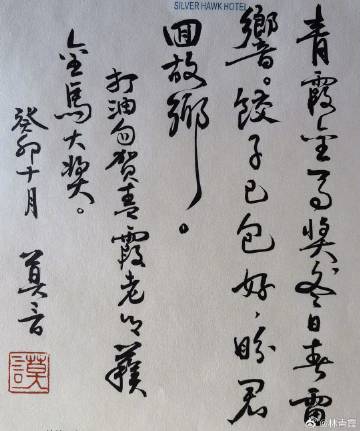 SILVER HAWK HOTEL
青霞金马奖冬日春雷
響。餃子已包好，盼君
回故鄉。
打油句贺青霞老师獲
金馬大奖。
癸卯十月 莫言
@林青霞